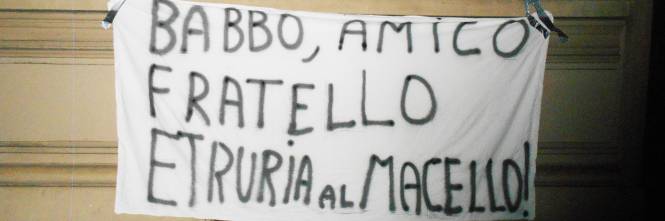 BABBO, AMICO
FRATELLO
ETRURIA AL MACELLO!